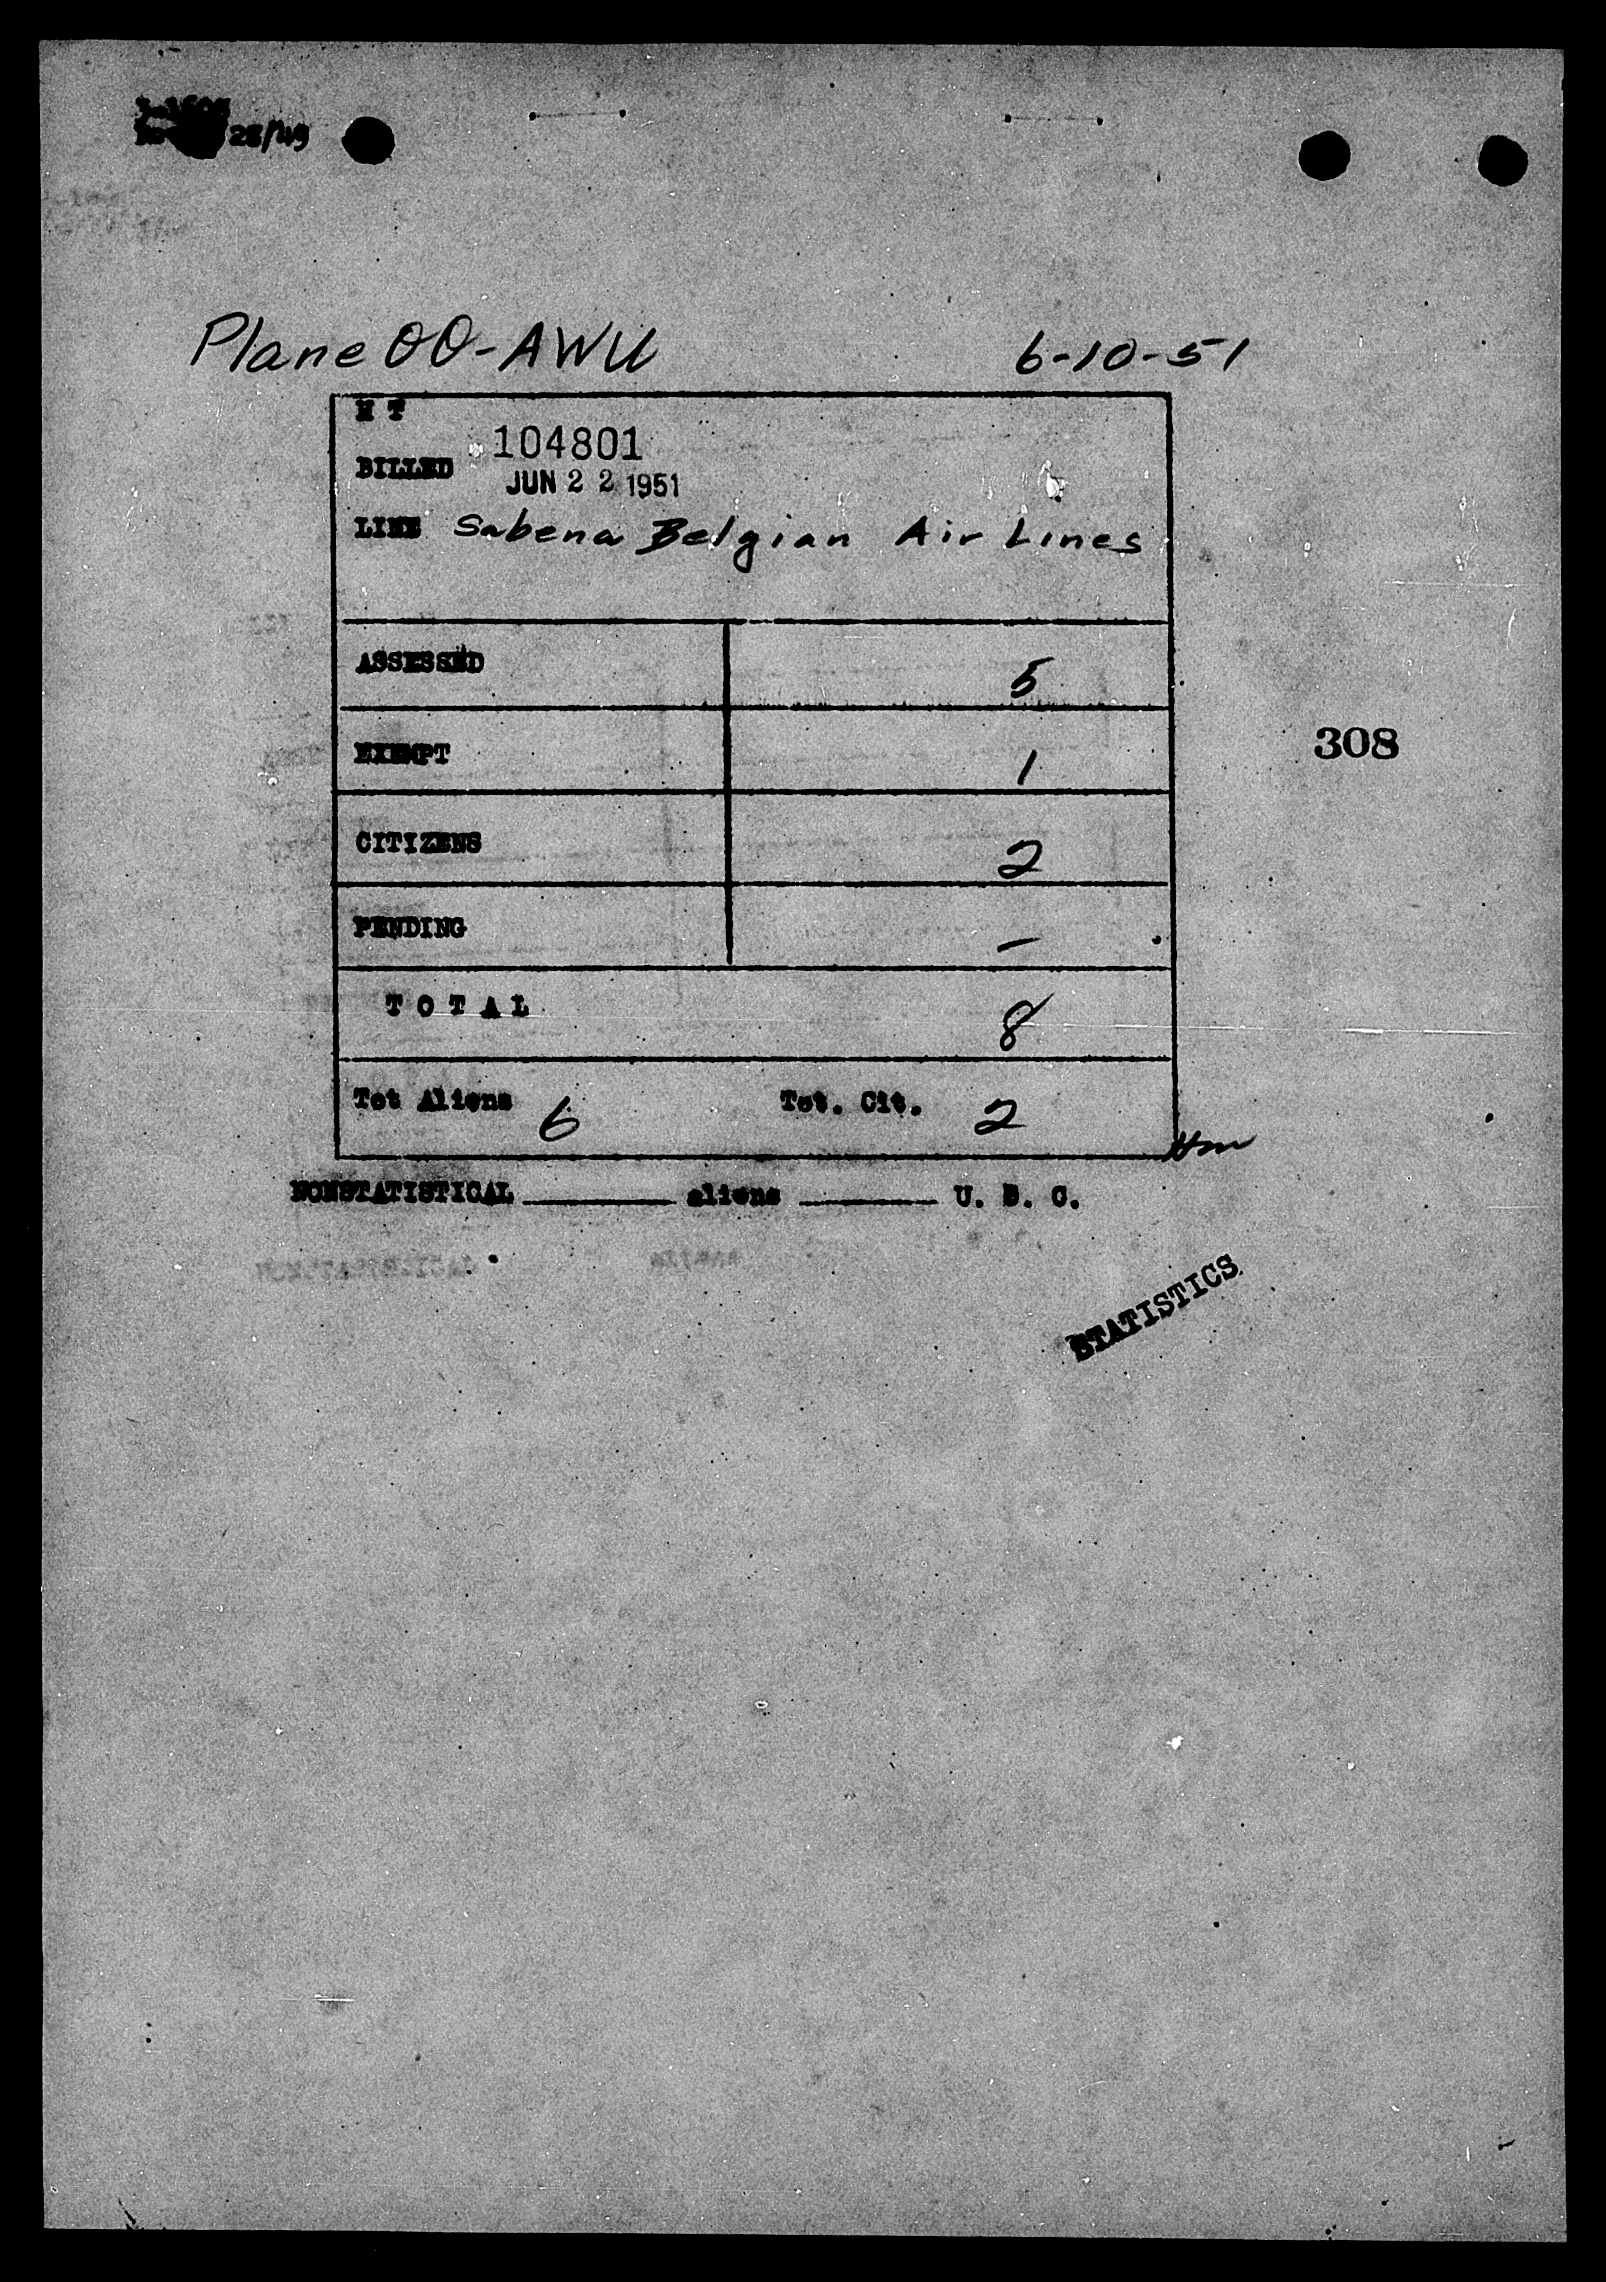 28/49
Plane OO-AWU 6-10-51
H T
104801
BILLED
JUN 22 1951
LINE Sabena Belgian Air Lines
ASSESSED 5
308
EXEMPT 1
CITIZENS 2
PENDING —
T O T A L 8
Tot Aliens 6 Tot. Cit. 2
NONSTATISTICAL ______ aliens ______ U. S. C.
STATISTICS